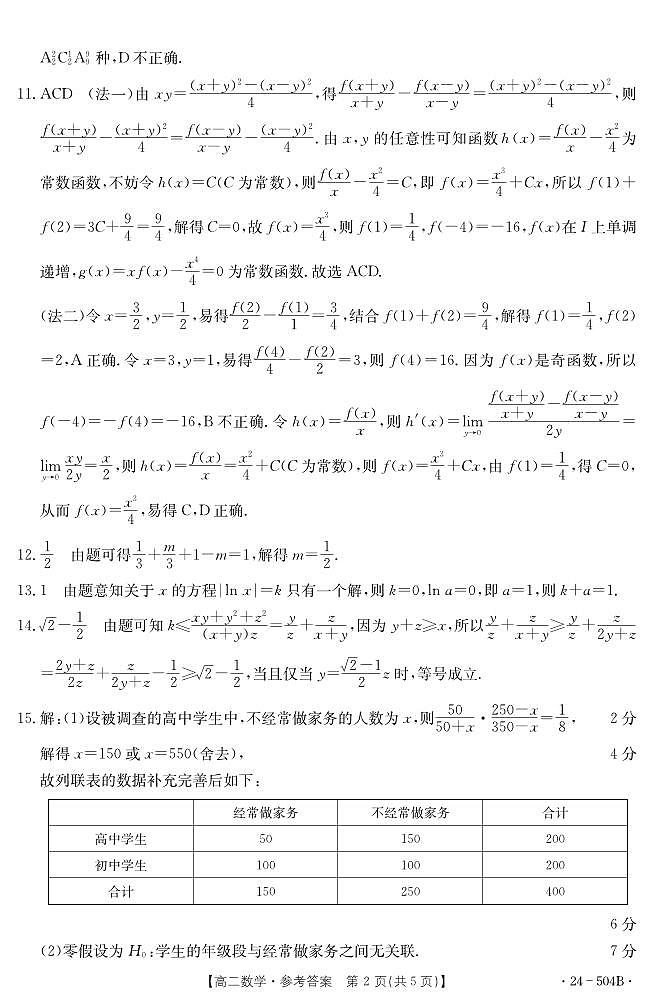 A₂²C₂¹A₉⁹ 种,D 不正确.
11. ACD (法一)由 xy=\frac{(x+y)²-(x-y)²}{4},得\frac{f(x+y)}{x+y}-\frac{f(x-y)}{x-y}=\frac{(x+y)²-(x-y)²}{4},则
\frac{f(x+y)}{x+y}-\frac{(x+y)²}{4}=\frac{f(x-y)}{x-y}-\frac{(x-y)²}{4}.由 x,y 的任意性可知函数 h(x)=\frac{f(x)}{x}-\frac{x²}{4}为
常数函数,不妨令 h(x)=C(C 为常数),则\frac{f(x)}{x}-\frac{x²}{4}=C,即 f(x)=\frac{x³}{4}+Cx,所以 f(1)+
f(2)=3C+\frac{9}{4}=\frac{9}{4},解得 C=0,故 f(x)=\frac{x³}{4},则 f(1)=\frac{1}{4},f(-4)=-16,f(x)在 I 上单调
递增,g(x)=xf(x)-\frac{x⁴}{4}=0 为常数函数.故选 ACD.
(法二)令 x=\frac{3}{2},y=\frac{1}{2},易得\frac{f(2)}{2}-\frac{f(1)}{1}=\frac{3}{4},结合 f(1)+f(2)=\frac{9}{4},解得 f(1)=\frac{1}{4},f(2)
=2,A 正确.令 x=3,y=1,易得\frac{f(4)}{4}-\frac{f(2)}{2}=3,则 f(4)=16.因为 f(x)是奇函数,所以
f(-4)=-f(4)=-16,B 不正确.令 h(x)=\frac{f(x)}{x},则 h′(x)=\lim_{y→0}\frac{\frac{f(x+y)}{x+y}-\frac{f(x-y)}{x-y}}{2y}=
\lim_{y→0}\frac{xy}{2y}=\frac{x}{2},则 h(x)=\frac{f(x)}{x}=\frac{x²}{4}+C(C 为常数),则 f(x)=\frac{x³}{4}+Cx,由 f(1)=\frac{1}{4},得 C=0,
从而 f(x)=\frac{x³}{4},易得 C,D 正确.
12. \frac{1}{2} 由题可得\frac{1}{3}+\frac{m}{3}+1-m=1,解得 m=\frac{1}{2}.
13. 1 由题意知关于 x 的方程|ln x|=k 只有一个解,则 k=0,ln a=0,即 a=1,则 k+a=1.
14. √2-\frac{1}{2} 由题可知 k≤\frac{xy+y²+z²}{(x+y)z}=\frac{y}{z}+\frac{z}{x+y},因为 y+z≥x,所以\frac{y}{z}+\frac{z}{x+y}≥\frac{y}{z}+\frac{z}{2y+z}
=\frac{2y+z}{2z}+\frac{z}{2y+z}-\frac{1}{2}≥√2-\frac{1}{2},当且仅当 y=\frac{√2-1}{2}z 时,等号成立.
15. 解:(1)设被调查的高中学生中,不经常做家务的人数为 x,则\frac{50}{50+x}·\frac{250-x}{350-x}=\frac{1}{8}, 2 分
解得 x=150 或 x=550(舍去), 4 分
故列联表的数据补充完善后如下:
经常做家务 不经常做家务 合计
高中学生 50 150 200
初中学生 100 100 200
合计 150 250 400
6 分
(2)零假设为 H₀:学生的年级段与经常做家务之间无关联. 7 分
【高二数学·参考答案 第 2 页(共 5 页)】 ·24-504B·